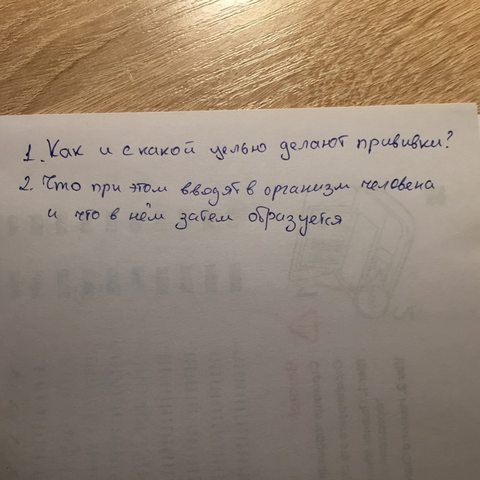 1. Как и с какой целью делают прививки?
2. Что при этом вводят в организм человека
и что в нём затем образуется